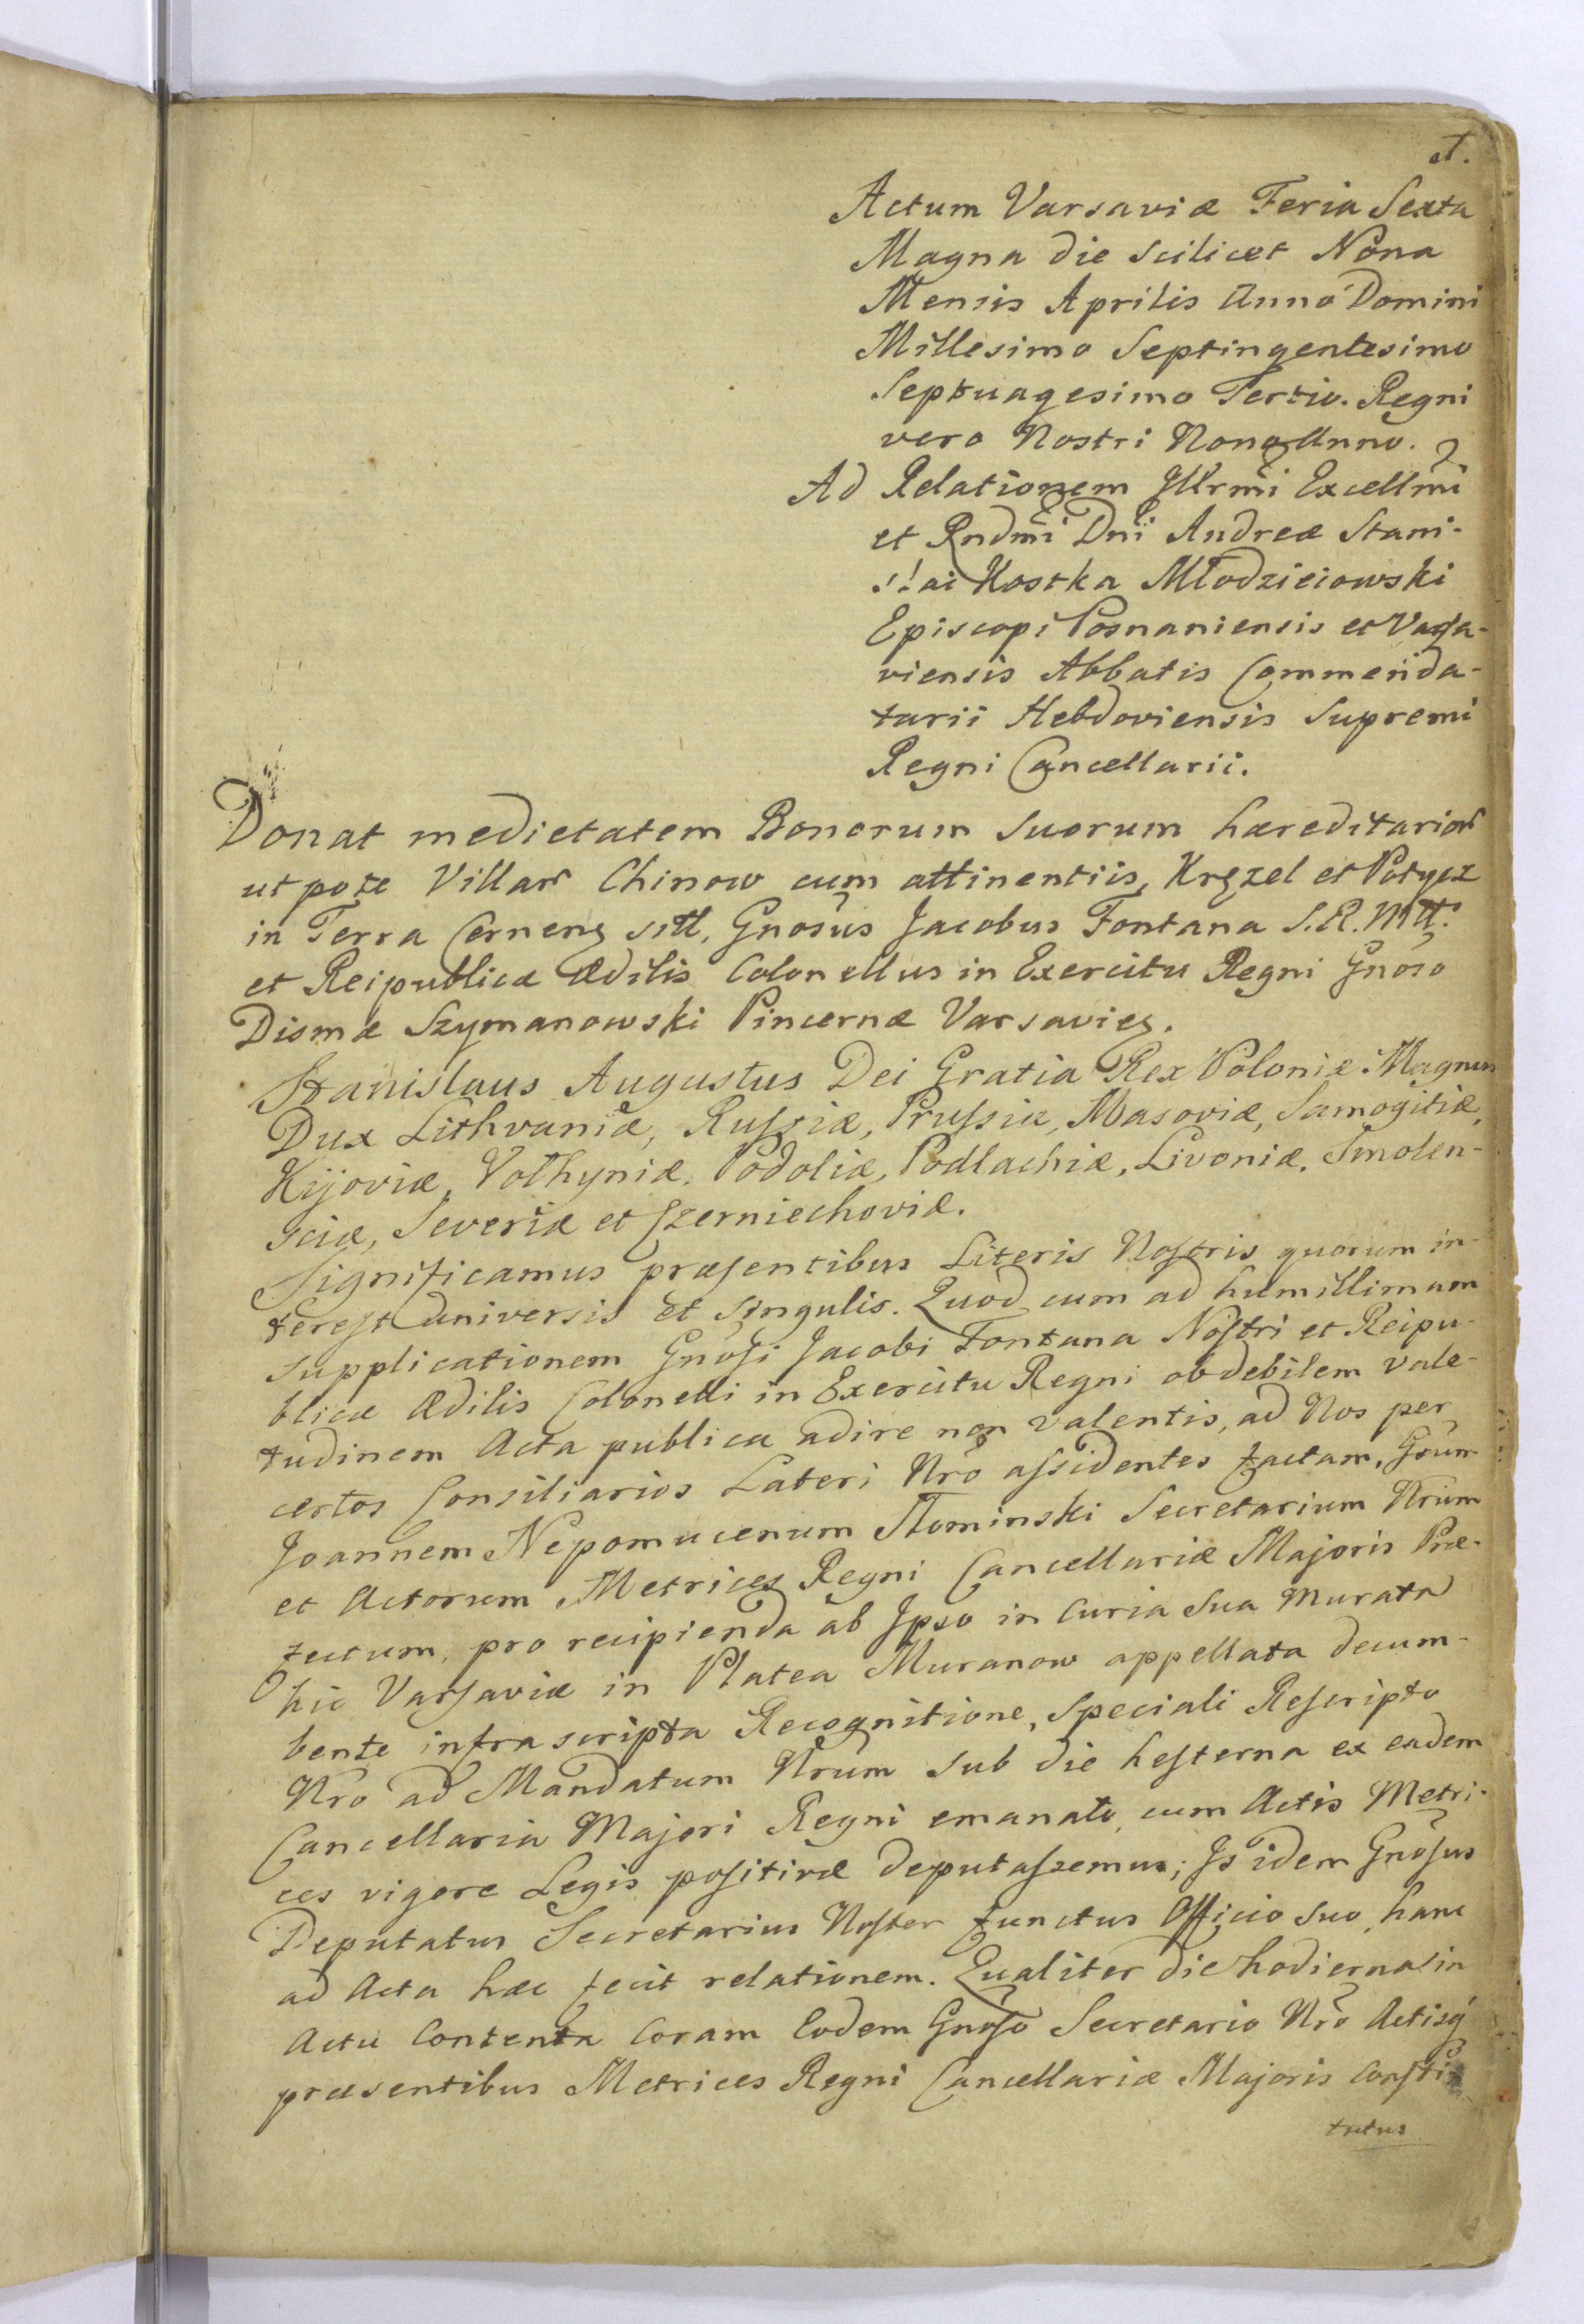 Actum Varsaviæ Feria Sexta
Magna die scilicet Nona
Mensis Aprilis Anno Domini
Millesimo Septingentesimo
Septuagesimo Tertio. Regni
vero Nostri Nono Anno.
Ad Relationem Illrmi Excellmi
et Rndmi Dni Andreæ Stani-
slai Kostka Młodzieiowski
Episcopi Posnaniensis et Varsa-
viensis Abbatis Commenda-
tarii Hebdoviensis Supremi
Regni Cancellarii.
Donat medietatem Bonorum suorum hæreditarior
utpote Villar Chinow cum attinentiis, Kręzel et Potycz
in Terra Cerneng sitt, Gnosus Jacobus Fontana S.R.Mtt.
et Reipublicæ Ædilis Colonellus in Exercitu Regni Gnoso
Dismæ Szymanowski Pincernæ Varsavieg.
Stanislaus Augustus Dei Gratia Rex Poloniæ Magnus
Dux Lithvaniæ, Russiæ, Prussiæ, Masoviæ, Samogitiæ,
Kijoviæ, Volhyniæ, Podoliæ, Podlachiæ, Livoniæ, Smolen-
sciæ, Severiæ et Czerniechoviæ.
Significamus præsentibus Literis Nostris quorum in-
terest universis et singulis. Quod cum ad humillimam
supplicationem Gnosi Jacobi Fontana Nostri et Reipu-
blicæ Ædilis Colonelli in Exercitu Regni ob debilem vale-
tudinem Acta publica adire non valentis, ad Nos per
certos Consiliarios Lateri Nro assidentes factam, Gsum
Joannem Nepomucenum Słominski Secretarium Nrum
et Actorum Metrices Regni Cancellariæ Majoris Præ-
fectum, pro recipienda ab Ipso in Curia sua murata
hic Varsaviæ in Platea Muranow appellata decum-
bente infrascripta Recognitione, speciali Rescripto
Nro ad Mandatum Nrum sub die hesterna ex eadem
Cancellaria Majori Regni emanato, cum Actis Metri-
ces vigore Legis positivæ deputassemus; Is idem Gnosus
Deputatus Secretarius Noster functus Officio suo, hanc
ad Acta hæc fecit relationem. Qualiter die hodierna in
Actu Contenta Coram Eodem Gnoso Secretario Nro Actisq
præsentibus Metrices Regni Cancellariæ Majoris Consti-
tutus